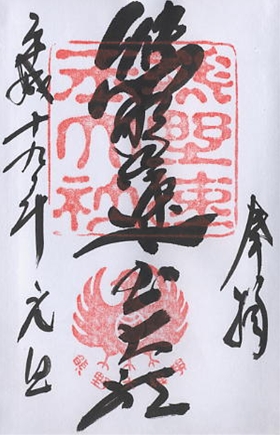 奉拝
熊野速玉大社
平成十九年 元旦
熊野速
玉大社